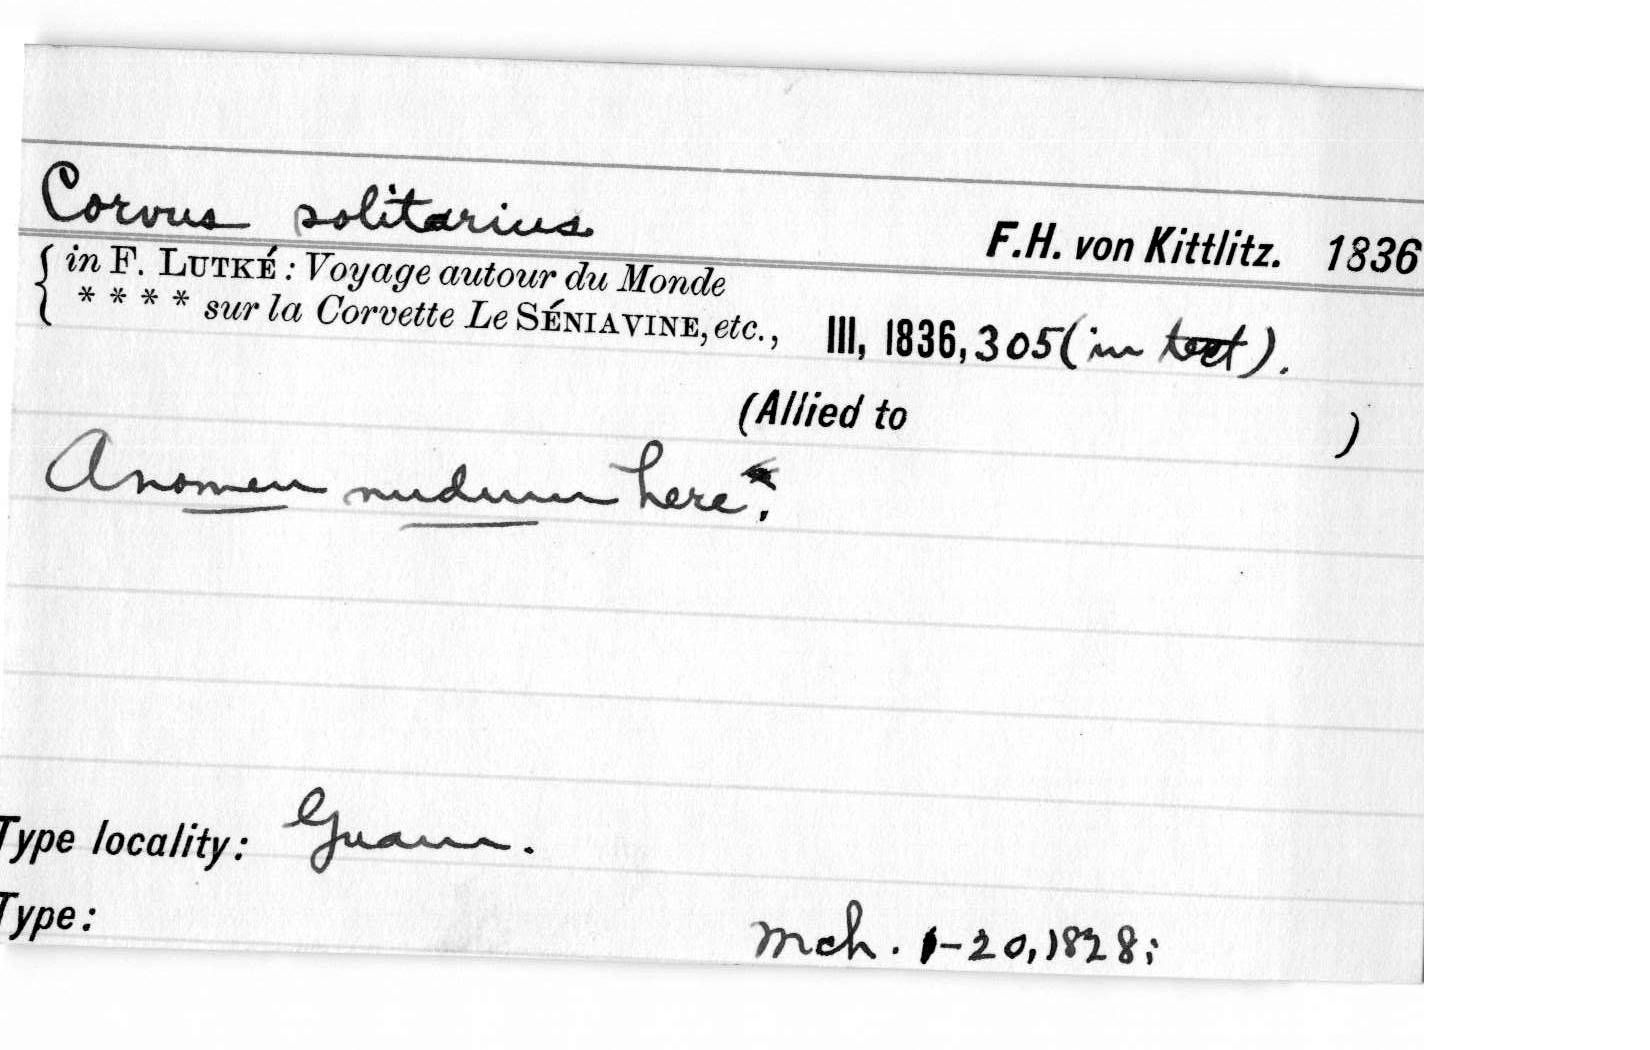 Corvus solitarius F.H. von Kittlitz. 1836
{ in F. LUTKÉ : Voyage autour du Monde
* * * * sur la Corvette Le SÉNIAVINE, etc., III, 1836, 305 (in text).
(Allied to )
A nomen nudum here.
Type locality: Guam.
Type: Mch. 1-20, 1828;